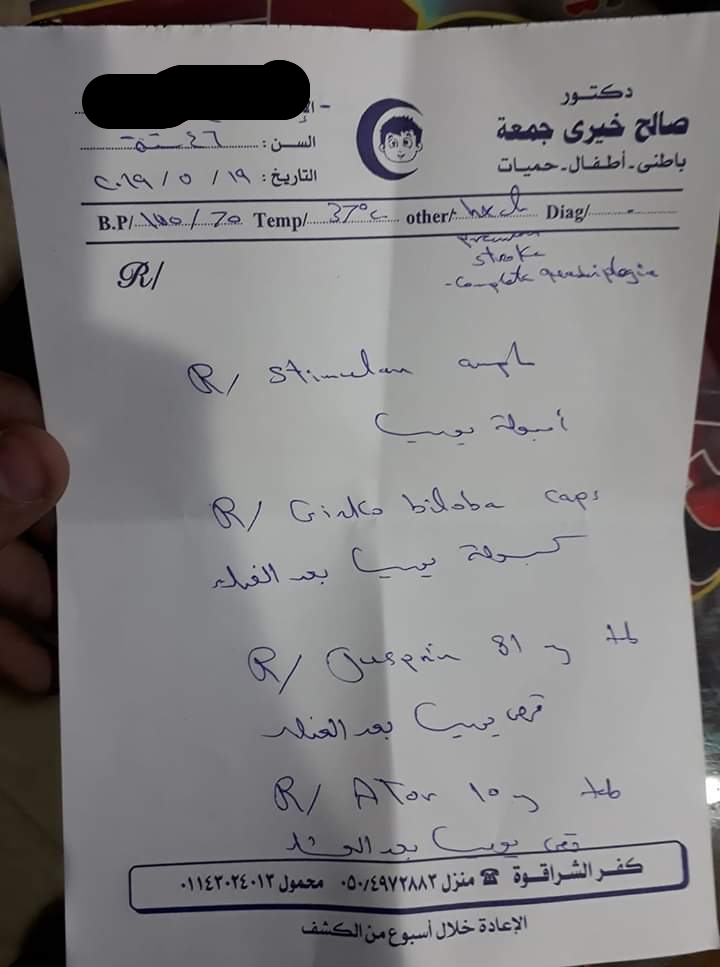 دكتور
صالح خيرى جمعة
باطنى - أطفال - حميات
السن : ٤٦ سنة
التاريخ : ١٩ / ٥ / ٢٠١٩
B.P/ 100 / 70 Temp/ 37°c other/ Diag/ -
stroke
- complete quadriplegia
R/
R/ Stimulan amp
أمبولة يوميا
R/ Ginko biloba caps
كبسولة يوميا بعد الغداء
R/ Jusprin 81 tb
قرص يوميا بعد الغداء
R/ ATor 10 tb
قرص يوميا بعد العشاء
كفر الشراقوة ☎ منزل ٠٥٠/٤٩٧٢٨٨٣ محمول ٠١١٤٣٠٢٤٠١٣
الإعادة خلال أسبوع من الكشف